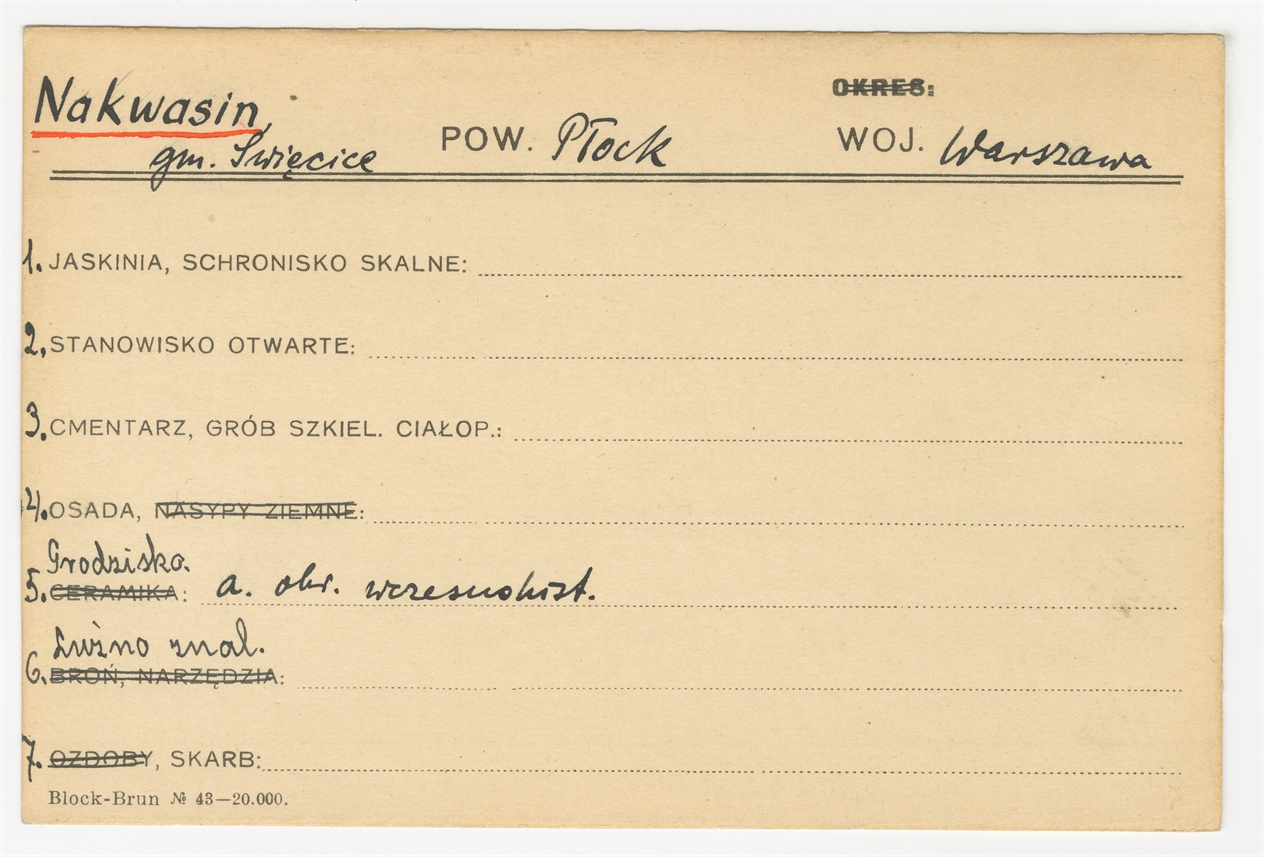 OKRES:
Nakwasin,
gm. Święcice POW. Płock WOJ. Warszawa
1. JASKINIA, SCHRONISKO SKALNE:
2. STANOWISKO OTWARTE:
3. CMENTARZ, GRÓB SZKIEL. CIAŁOP.:
4. OSADA, NASYPY ZIEMNE:
Grodzisko.
5. CERAMIKA: a. okr. wczesnohist.
Luźno znal.
6. BROŃ, NARZĘDZIA:
7. OZDOBY, SKARB:
Block-Brun № 43—20.000.